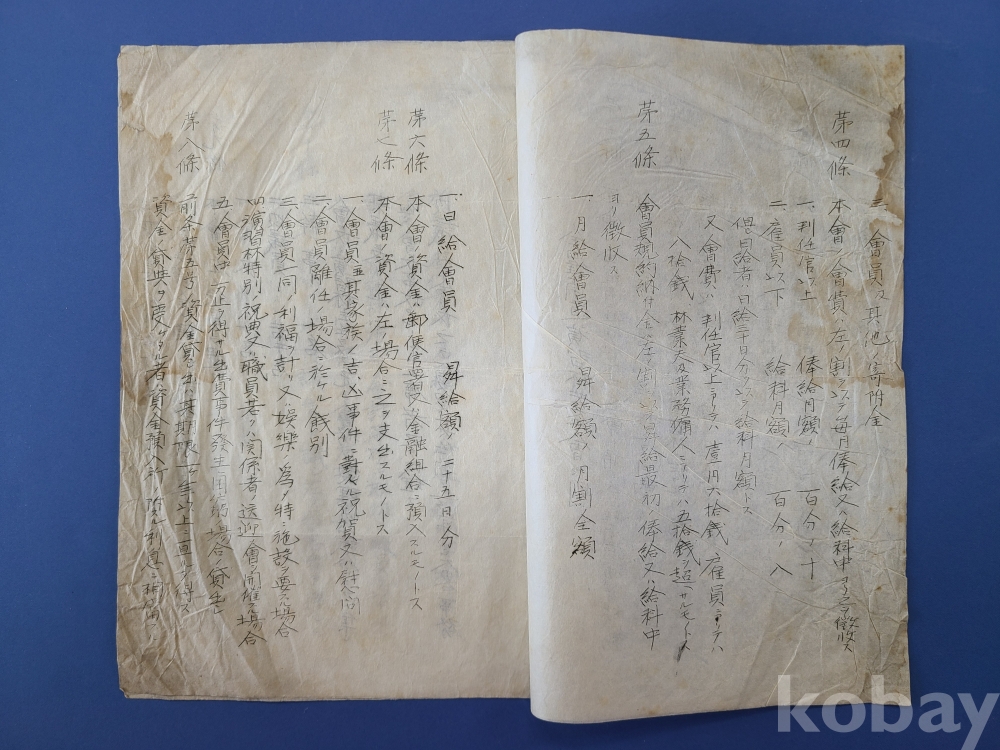 三、會員又ハ其他ノ寄附金
第四條 本會ノ會費ハ左ノ割ヲ以テ毎月俸給又ハ給料中ヨリ之ヲ徴收ス
一、判任官以上 俸給月額ノ 百分ノ十
二、雇員以下 給料月額ノ 百分ノ八
但日給者ハ日給三十日分ヲ以テ給料月額トス
又會費ハ判任官以上ニアリテハ壹円六拾銭 雇員ニアリテハ
八拾銭 林業夫及業務傭人ニアリテハ五拾銭ヲ超サルモノトス
第五條 會員規約納付金ハ左ノ割 昇給最初ノ俸給又ハ給料中
ヨリ徴收ス
一、月給會員 昇給額ノ月割全額
一、日給會員 昇給額ノ 二十五日分
第六條 本會ノ資金ハ郵便官署又ハ金融組合ニ預入スルモノトス
第七條 本會ノ資金ハ左ノ場合ニ之ヲ支出スルモノトス
一、會員並其家族ノ吉凶事件ニ對スル祝賀又ハ慰問
二、會員離任ノ場合ニ於ケル餞別
三、會員一同ノ利福ヲ計リ又ハ娯樂ノ為メ特ニ施設ヲ要スル場合
四、演習林特別ノ祝典又ハ職員若クハ関係者ノ送迎會ヲ開催スル場合
五、會員中 止ヲ得サル出費事件發生 場合ノ貸出シ
第八條 前条第五号ノ資金貸出ハ其期限一ケ年以上ニ亘ルヲ得ス
資金ノ貸與ヲ受ケタル者ハ資金預入所ノ 利